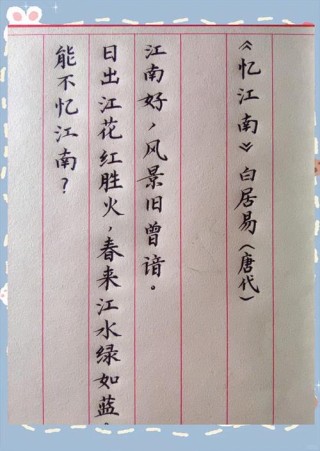 《忆江南》白居易（唐代）
江南好，风景旧曾谙。
日出江花红胜火，春来江水绿如蓝。
能不忆江南？